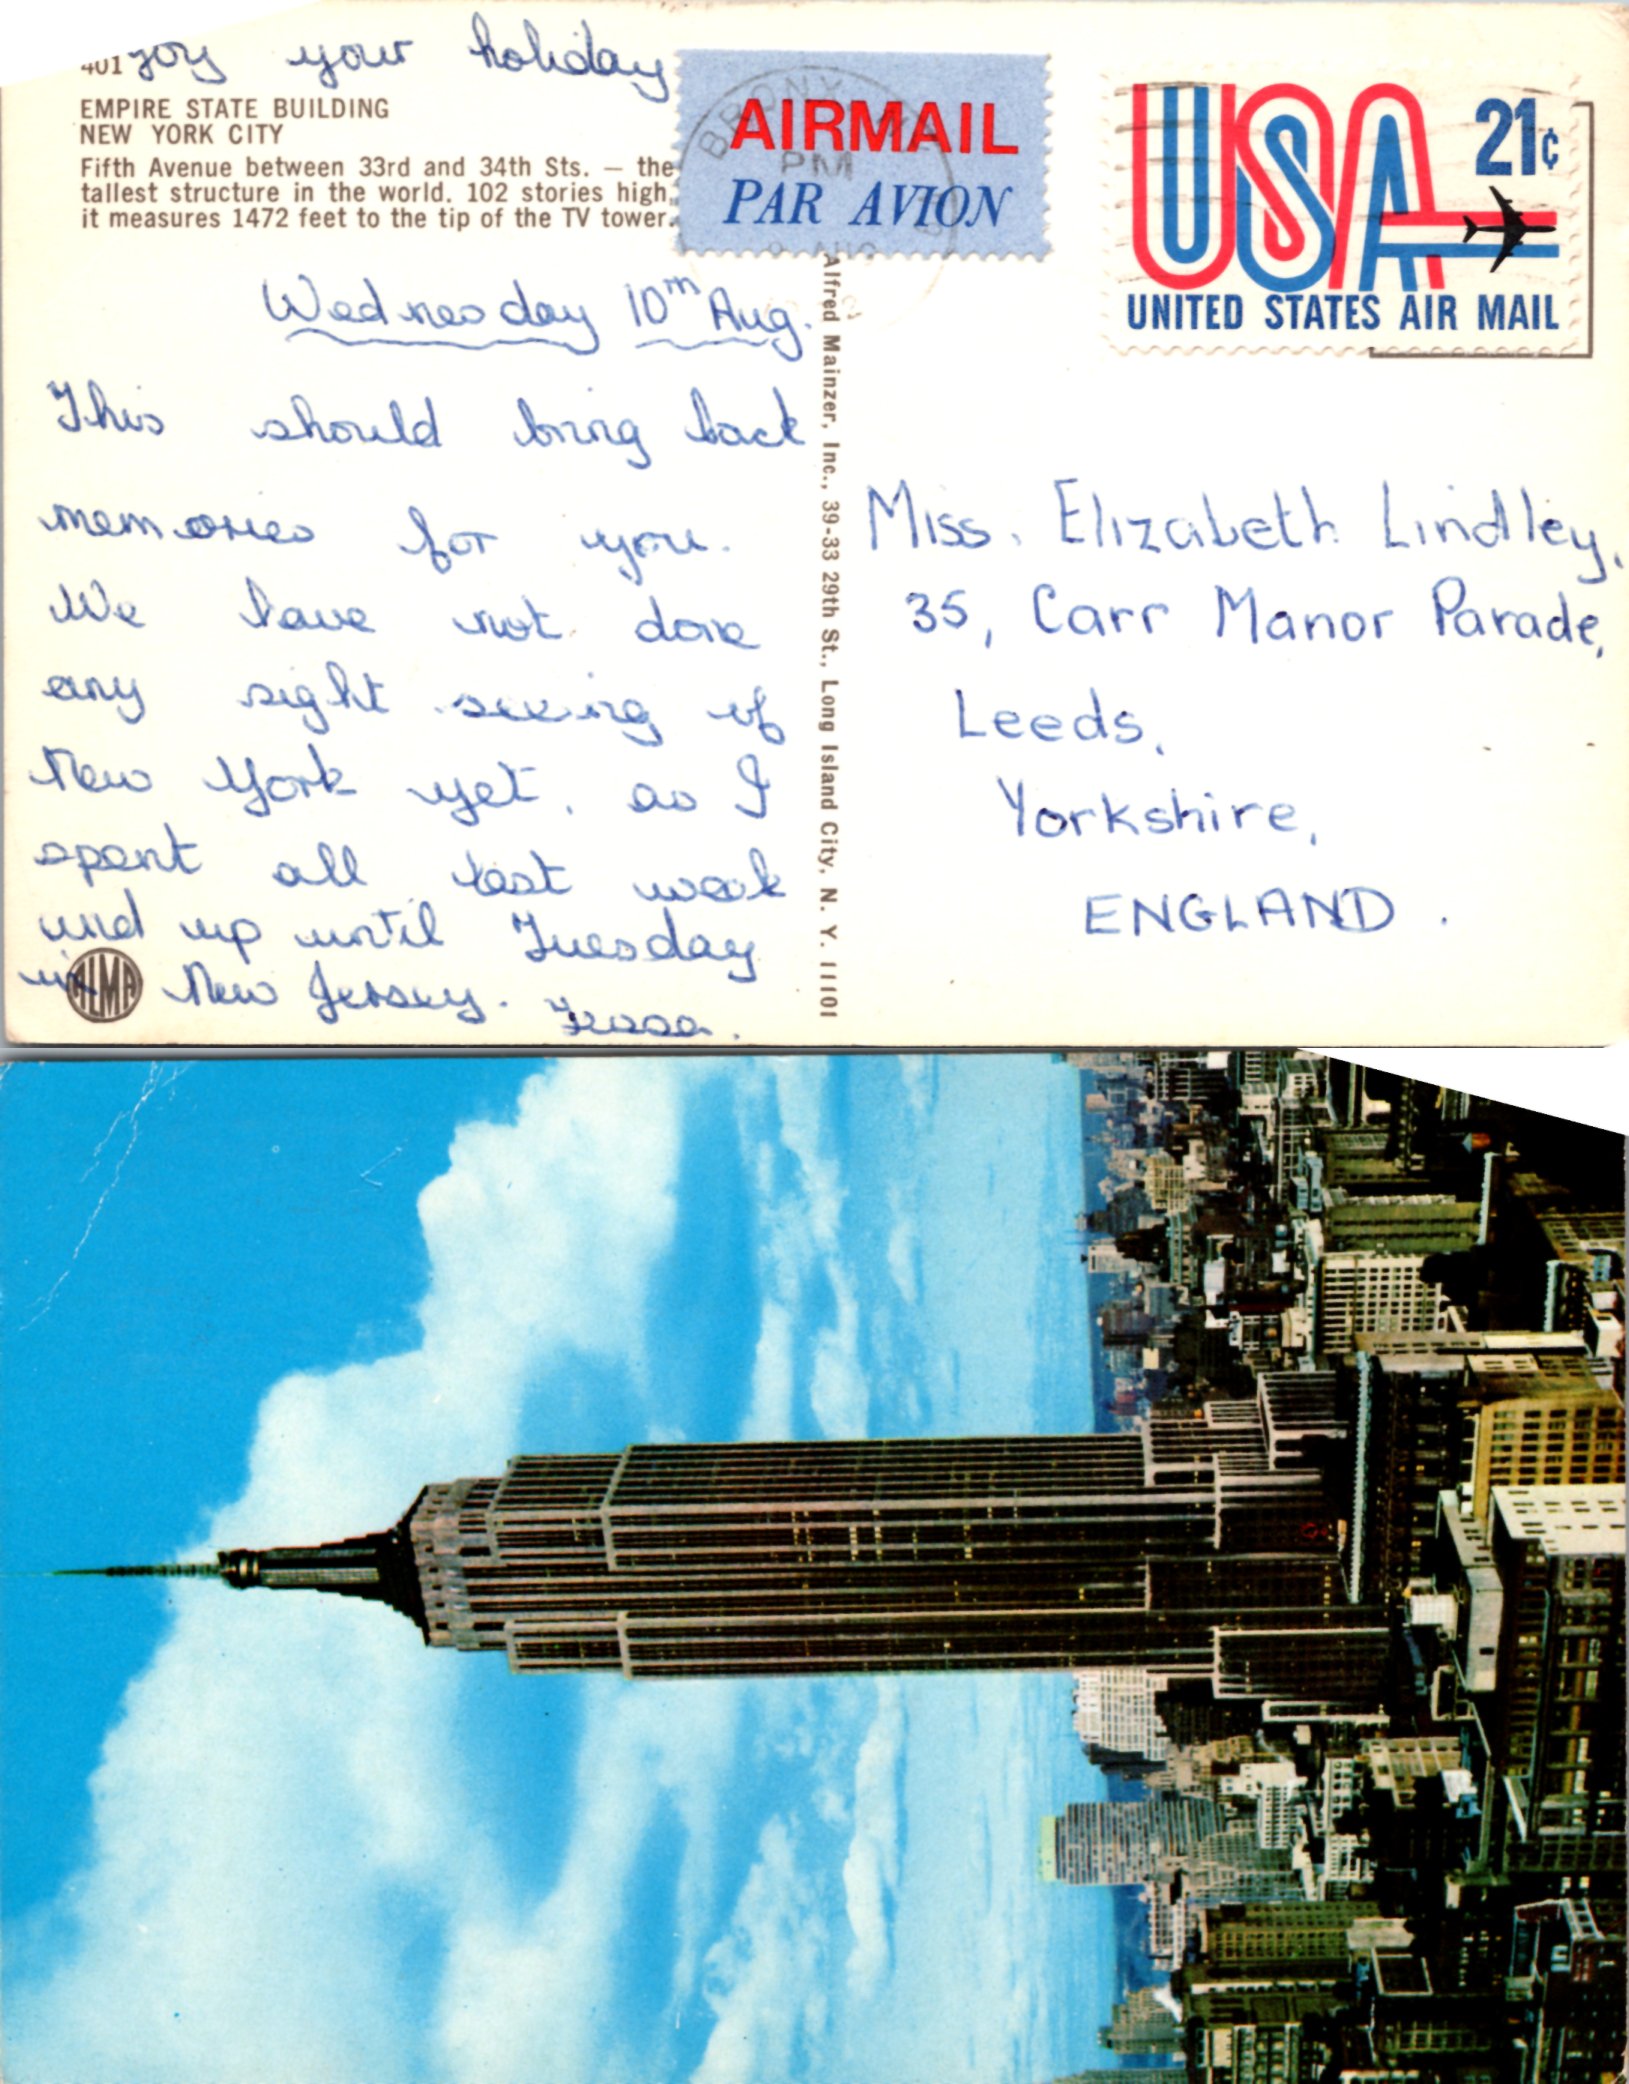 401 joy your holiday
EMPIRE STATE BUILDING
NEW YORK CITY
Fifth Avenue between 33rd and 34th Sts. — the
tallest structure in the world. 102 stories high,
it measures 1472 feet to the tip of the TV tower.
AIRMAIL
PAR AVION
BRONX
PM
USA 21¢
UNITED STATES AIR MAIL
Wednesday 10th Aug.
This should bring back
memories for you.
We have not done
any sight seeing of
New York yet, as I
spent all last week
and up until Tuesday
in New Jersey.
ALMA
Alfred Mainzer, Inc., 39-33 29th St., Long Island City, N. Y. 11101
Miss. Elizabeth Lindley,
35, Carr Manor Parade,
Leeds,
Yorkshire,
ENGLAND.